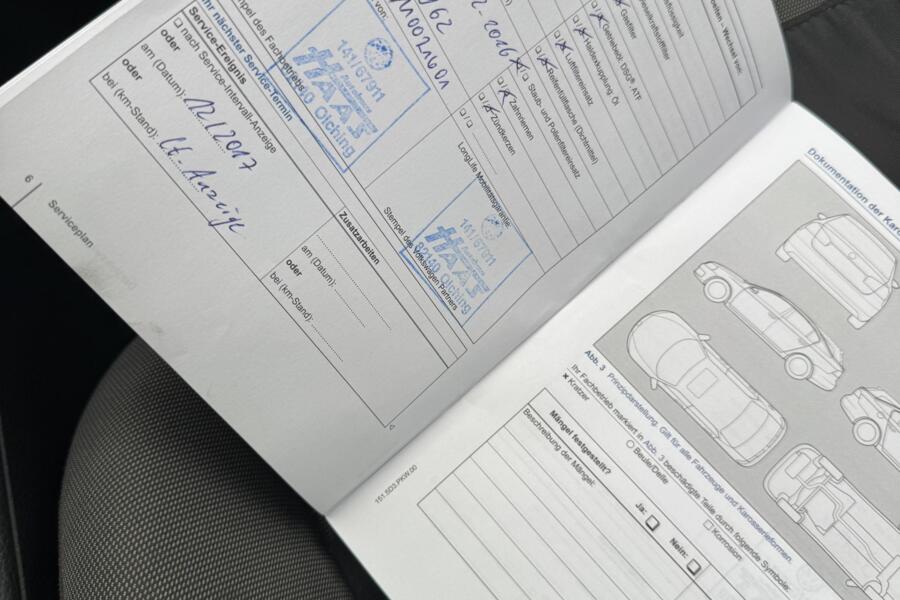 beiten – Wechsel von:
Kraftstofffilter
Gasfilter
Getriebeöl: DSG®, ATF
Haldexkupplung: Öl
Luftfiltereinsatz
Reifenfüllflasche (Dichtmittel)
Staub- und Pollenfiltereinsatz
Zahnriemen
Zündkerzen
von:
2-2016
Stempel des Fachbetriebs
141/67911
HAAT
82140 Olching
Ihr nächster Service-Termin
Service-Ereignis
nach Service-Intervall-Anzeige
oder
am (Datum): 12/2017
oder
bei (km-Stand): lt. Anzeige
LongLife Mobilitätsgarantie:
141/67911
HAAT
82140 Olching
Stempel des Volkswagen Partners
Zusatzarbeiten
am (Datum):
oder
bei (km-Stand):
6
Serviceplan
Dokumentation der Karo
Abb. 3 Prinzipdarstellung. Gilt für alle Fahrzeuge und Karosserieformen.
Ihr Fachbetrieb markiert in Abb. 3 beschädigte Teile durch folgende Symbole:
× Kratzer
Beule/Delle
Korrosion
Mängel festgestellt?
Ja:
Nein:
Beschreibung der Mängel:
151.5D3.PKW.00